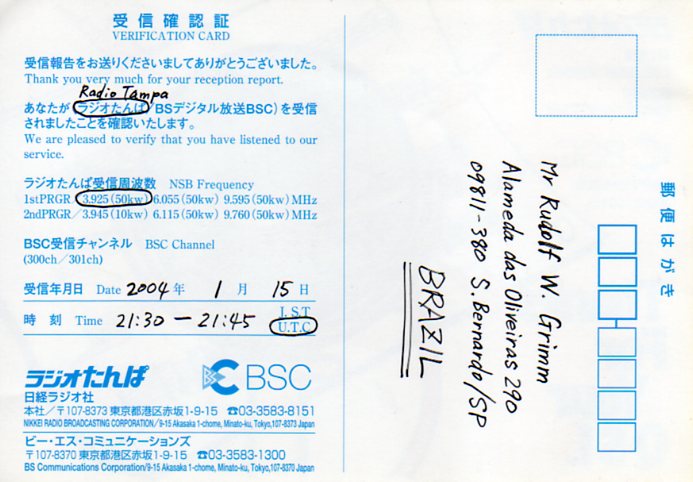 受信確認証
VERIFICATION CARD
受信報告をお送りくださいましてありがとうございました。
Thank you very much for your reception report.
Radio Tampa
あなたが(ラジオたんぱ/BSデジタル放送BSC)を受信
されましたことを確認いたします。
We are pleased to verify that you have listened to our
service.
ラジオたんぱ受信周波数 NSB Frequency
1stPRGR/3.925(50kw) 6.055(50kw) 9.595(50kw)MHz
2ndPRGR/3.945(10kw) 6.115(50kw) 9.760(50kw)MHz
BSC受信チャンネル BSC Channel
(300ch/301ch)
受信年月日 Date 2004年 1月 15日
時刻 Time 21:30 — 21:45 J.S.T
U.T.C
ラジオたんぱ BSC
日経ラジオ社
本社/〒107-8373 東京都港区赤坂1-9-15 ☎03-3583-8151
NIKKEI RADIO BROADCASTING CORPORATION/9-15 Akasaka 1-chome, Minato-ku, Tokyo,107-8373 Japan
ビー・エス・コミュニケーションズ
〒107-8370 東京都港区赤坂1-9-15 ☎03-3583-1300
BS Communications Corporation/9-15 Akasaka 1-chome, Minato-ku, Tokyo,107-8370 Japan
郵便はがき
Mr Rudolf W. Grimm
Alameda das Oliveiras 290
09811-380 S. Bernardo/SP
BRAZIL